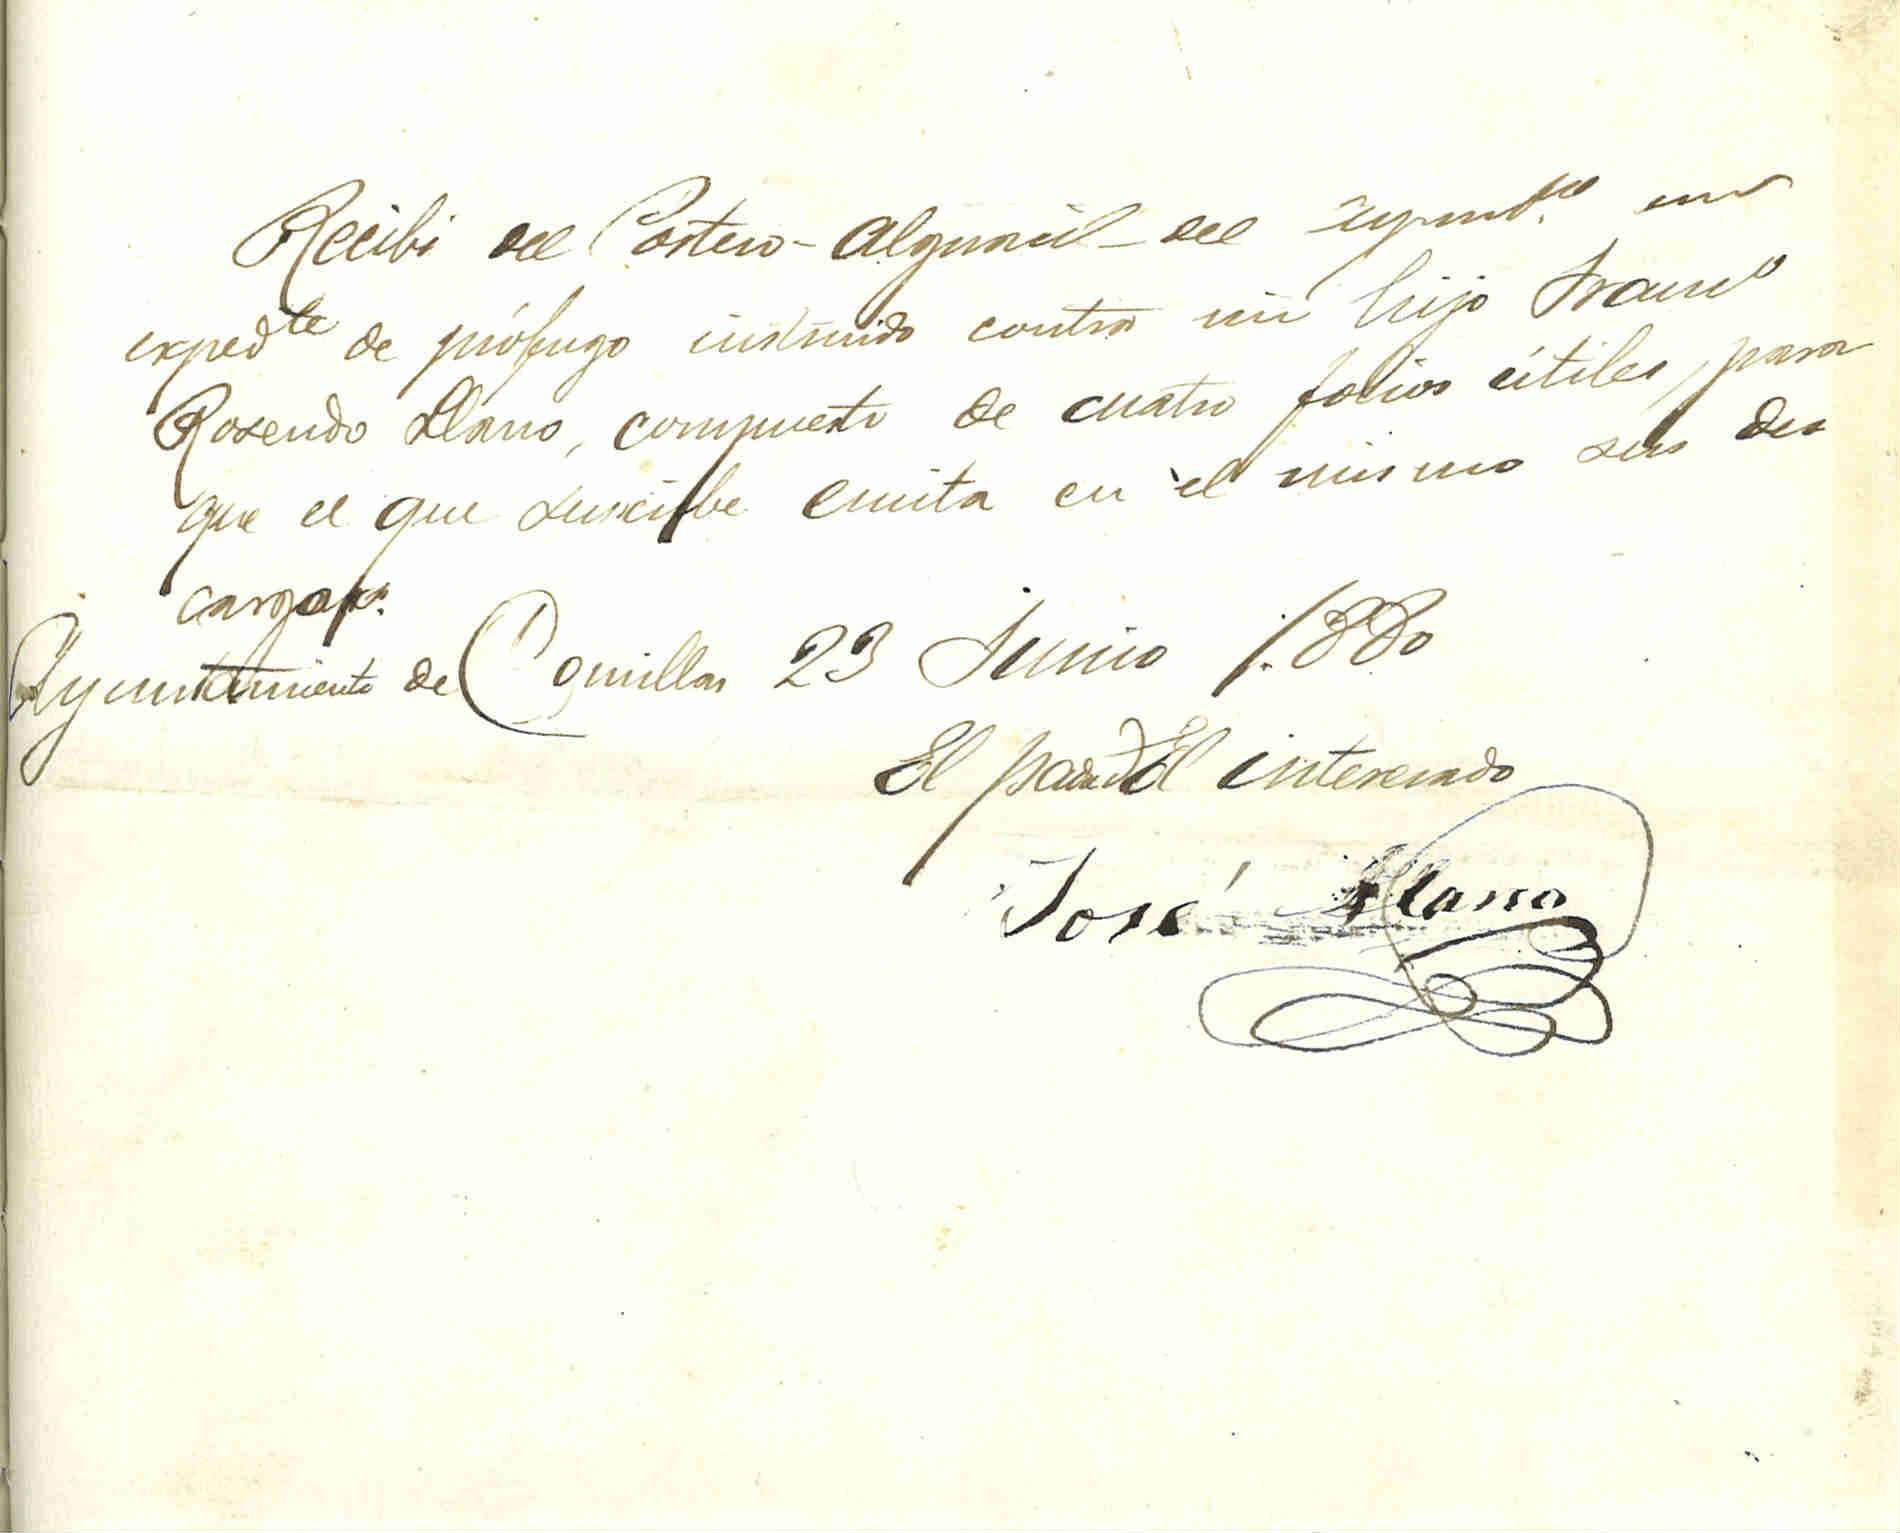 Recibi del Portero-Alguacil-del Ayunt.to un
exped.te de prófugo instruido contra mi hijo Franco
Rosendo Llano, compuesto de cuatro folios útiles, para
que el que suscribe emita en el mismo sus des
cargos.
Ayuntamiento de Comillas 23 Junio 1.880
El padre del interesado
José Llano